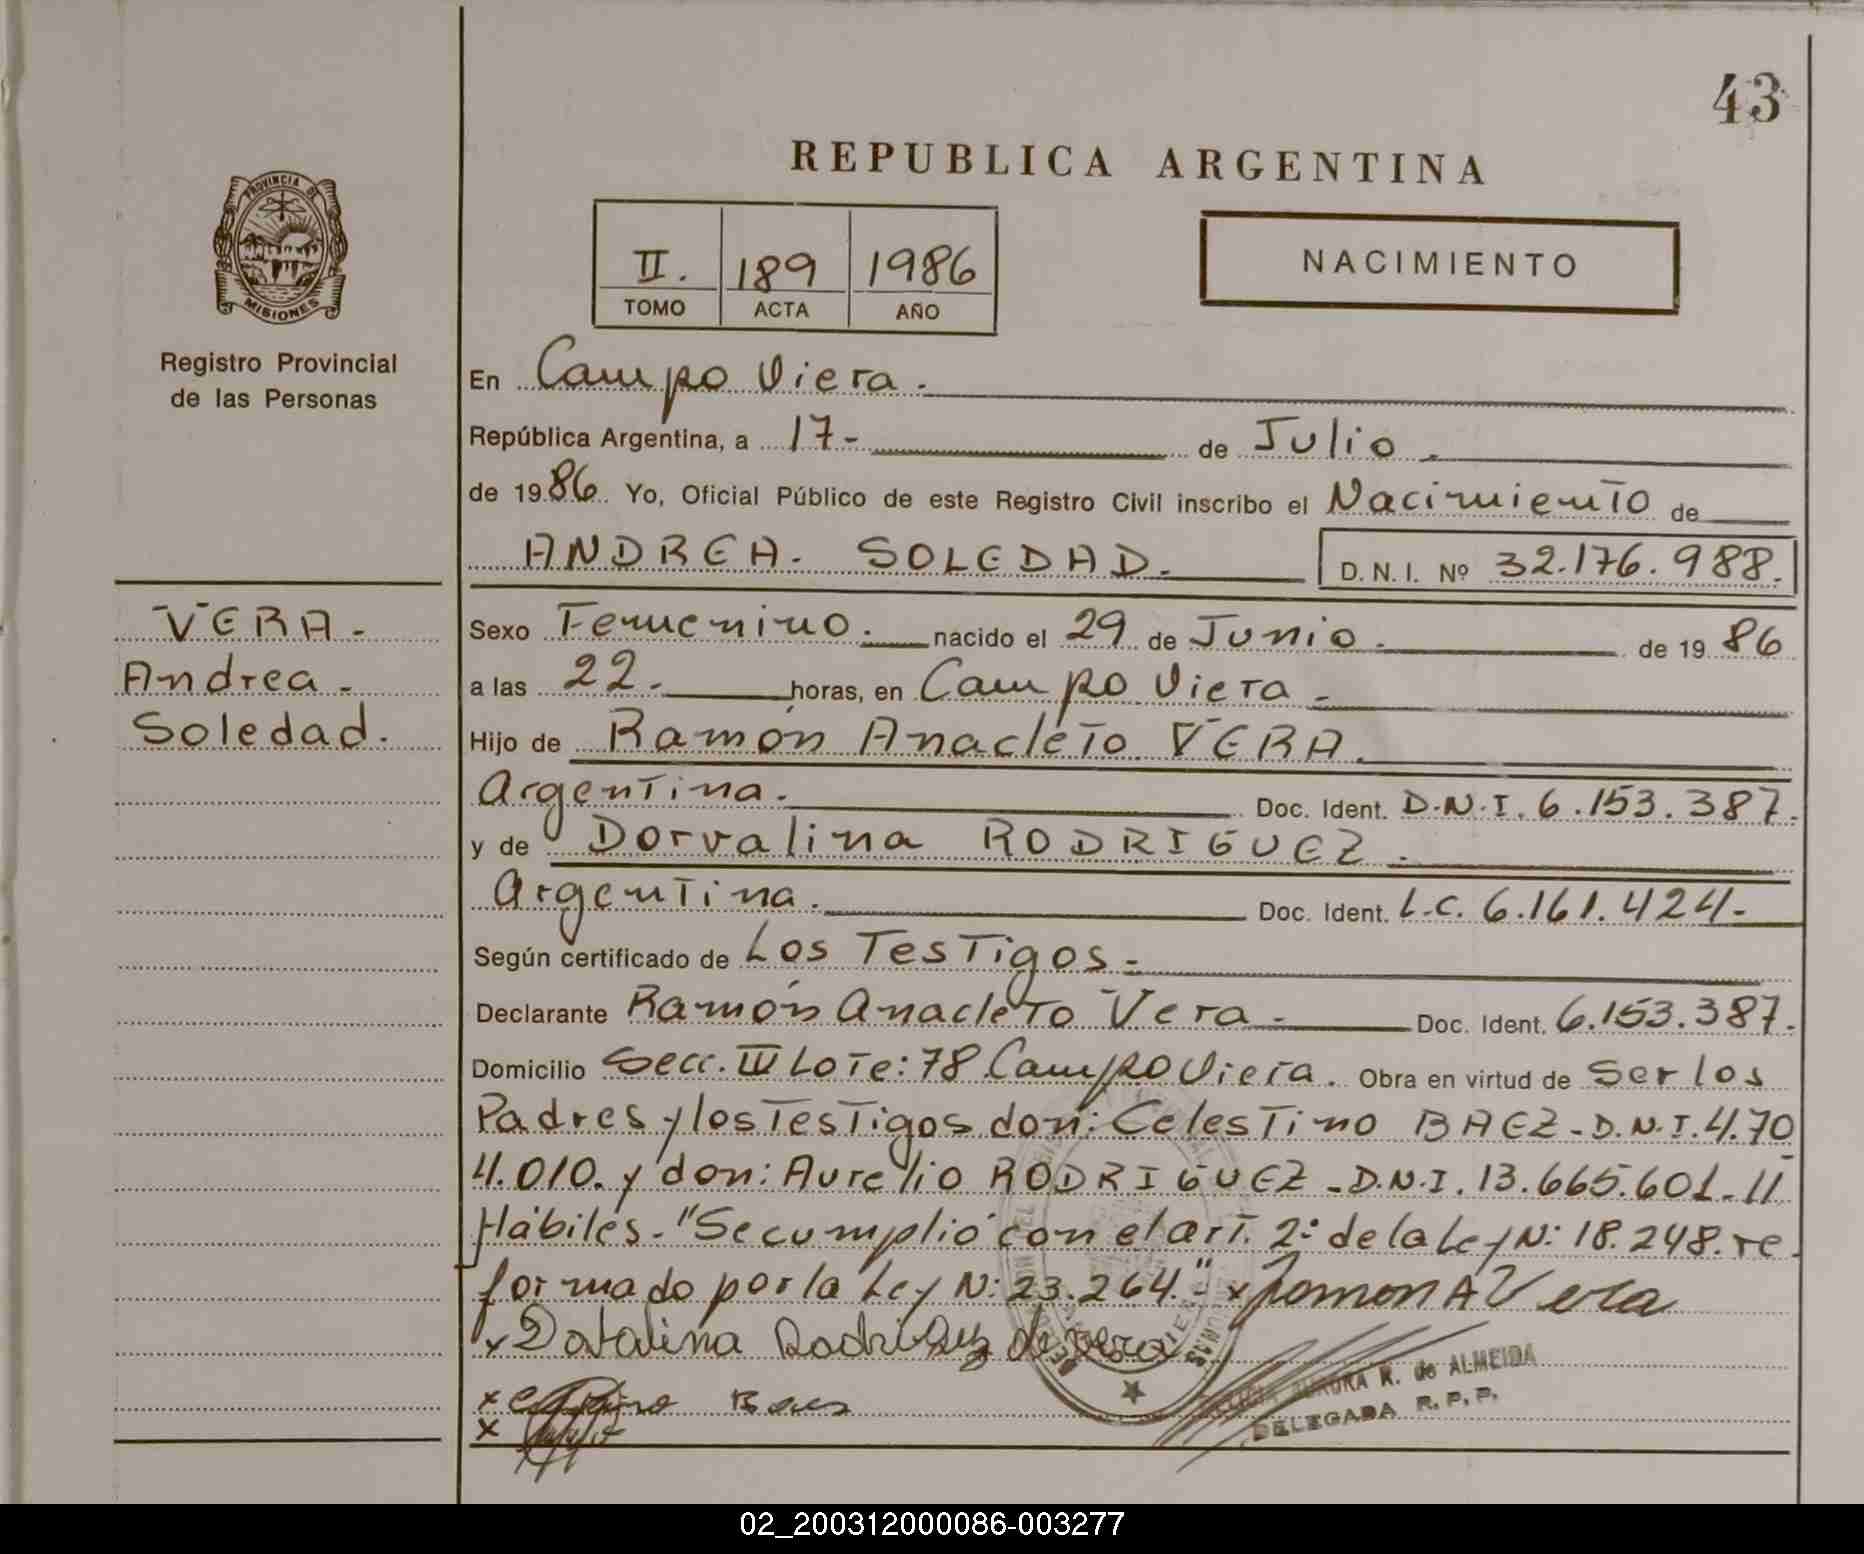 43
REPUBLICA ARGENTINA
PROVINCIA DE
MISIONES
Registro Provincial
de las Personas
II. 189 1986
TOMO ACTA AÑO
NACIMIENTO
En Campo Viera.
República Argentina, a 17- de Julio.
de 1986 Yo, Oficial Público de este Registro Civil inscribo el Nacimiento de
ANDREA. SOLEDAD. D. N. I. Nº 32.176.988.
VERA.
Andrea.
Soledad.
Sexo Femenino. nacido el 29 de Junio. de 1986
a las 22. horas, en Campo Viera.
Hijo de Ramón Anacleto VERA.
Argentina. Doc. Ident. D.N.I. 6.153.387.
y de Dorvalina RODRIGUEZ.
Argentina. Doc. Ident. L.C. 6.161.424-
Según certificado de Los Testigos.
Declarante Ramón Anacleto Vera. Doc. Ident. 6.153.387.
Domicilio Secc. III Lote: 78 Campo Viera. Obra en virtud de Ser los
Padres y los Testigos don: Celestino BAEZ - D.N.I. 4.70
4.010. y don: Aurelio RODRIGUEZ - D.N.I. 13.665.601-
Hábiles. "Se cumplió con el art. 2º de la Ley Nº 18.248. re
formado por la Ley Nº 23.264." x Ramon A Vera
x Dorvalina Rodriguez de Vera
x Baes
x
AURORA R. de ALMEIDA
DELEGADA R. P. P.
02_200312000086-003277